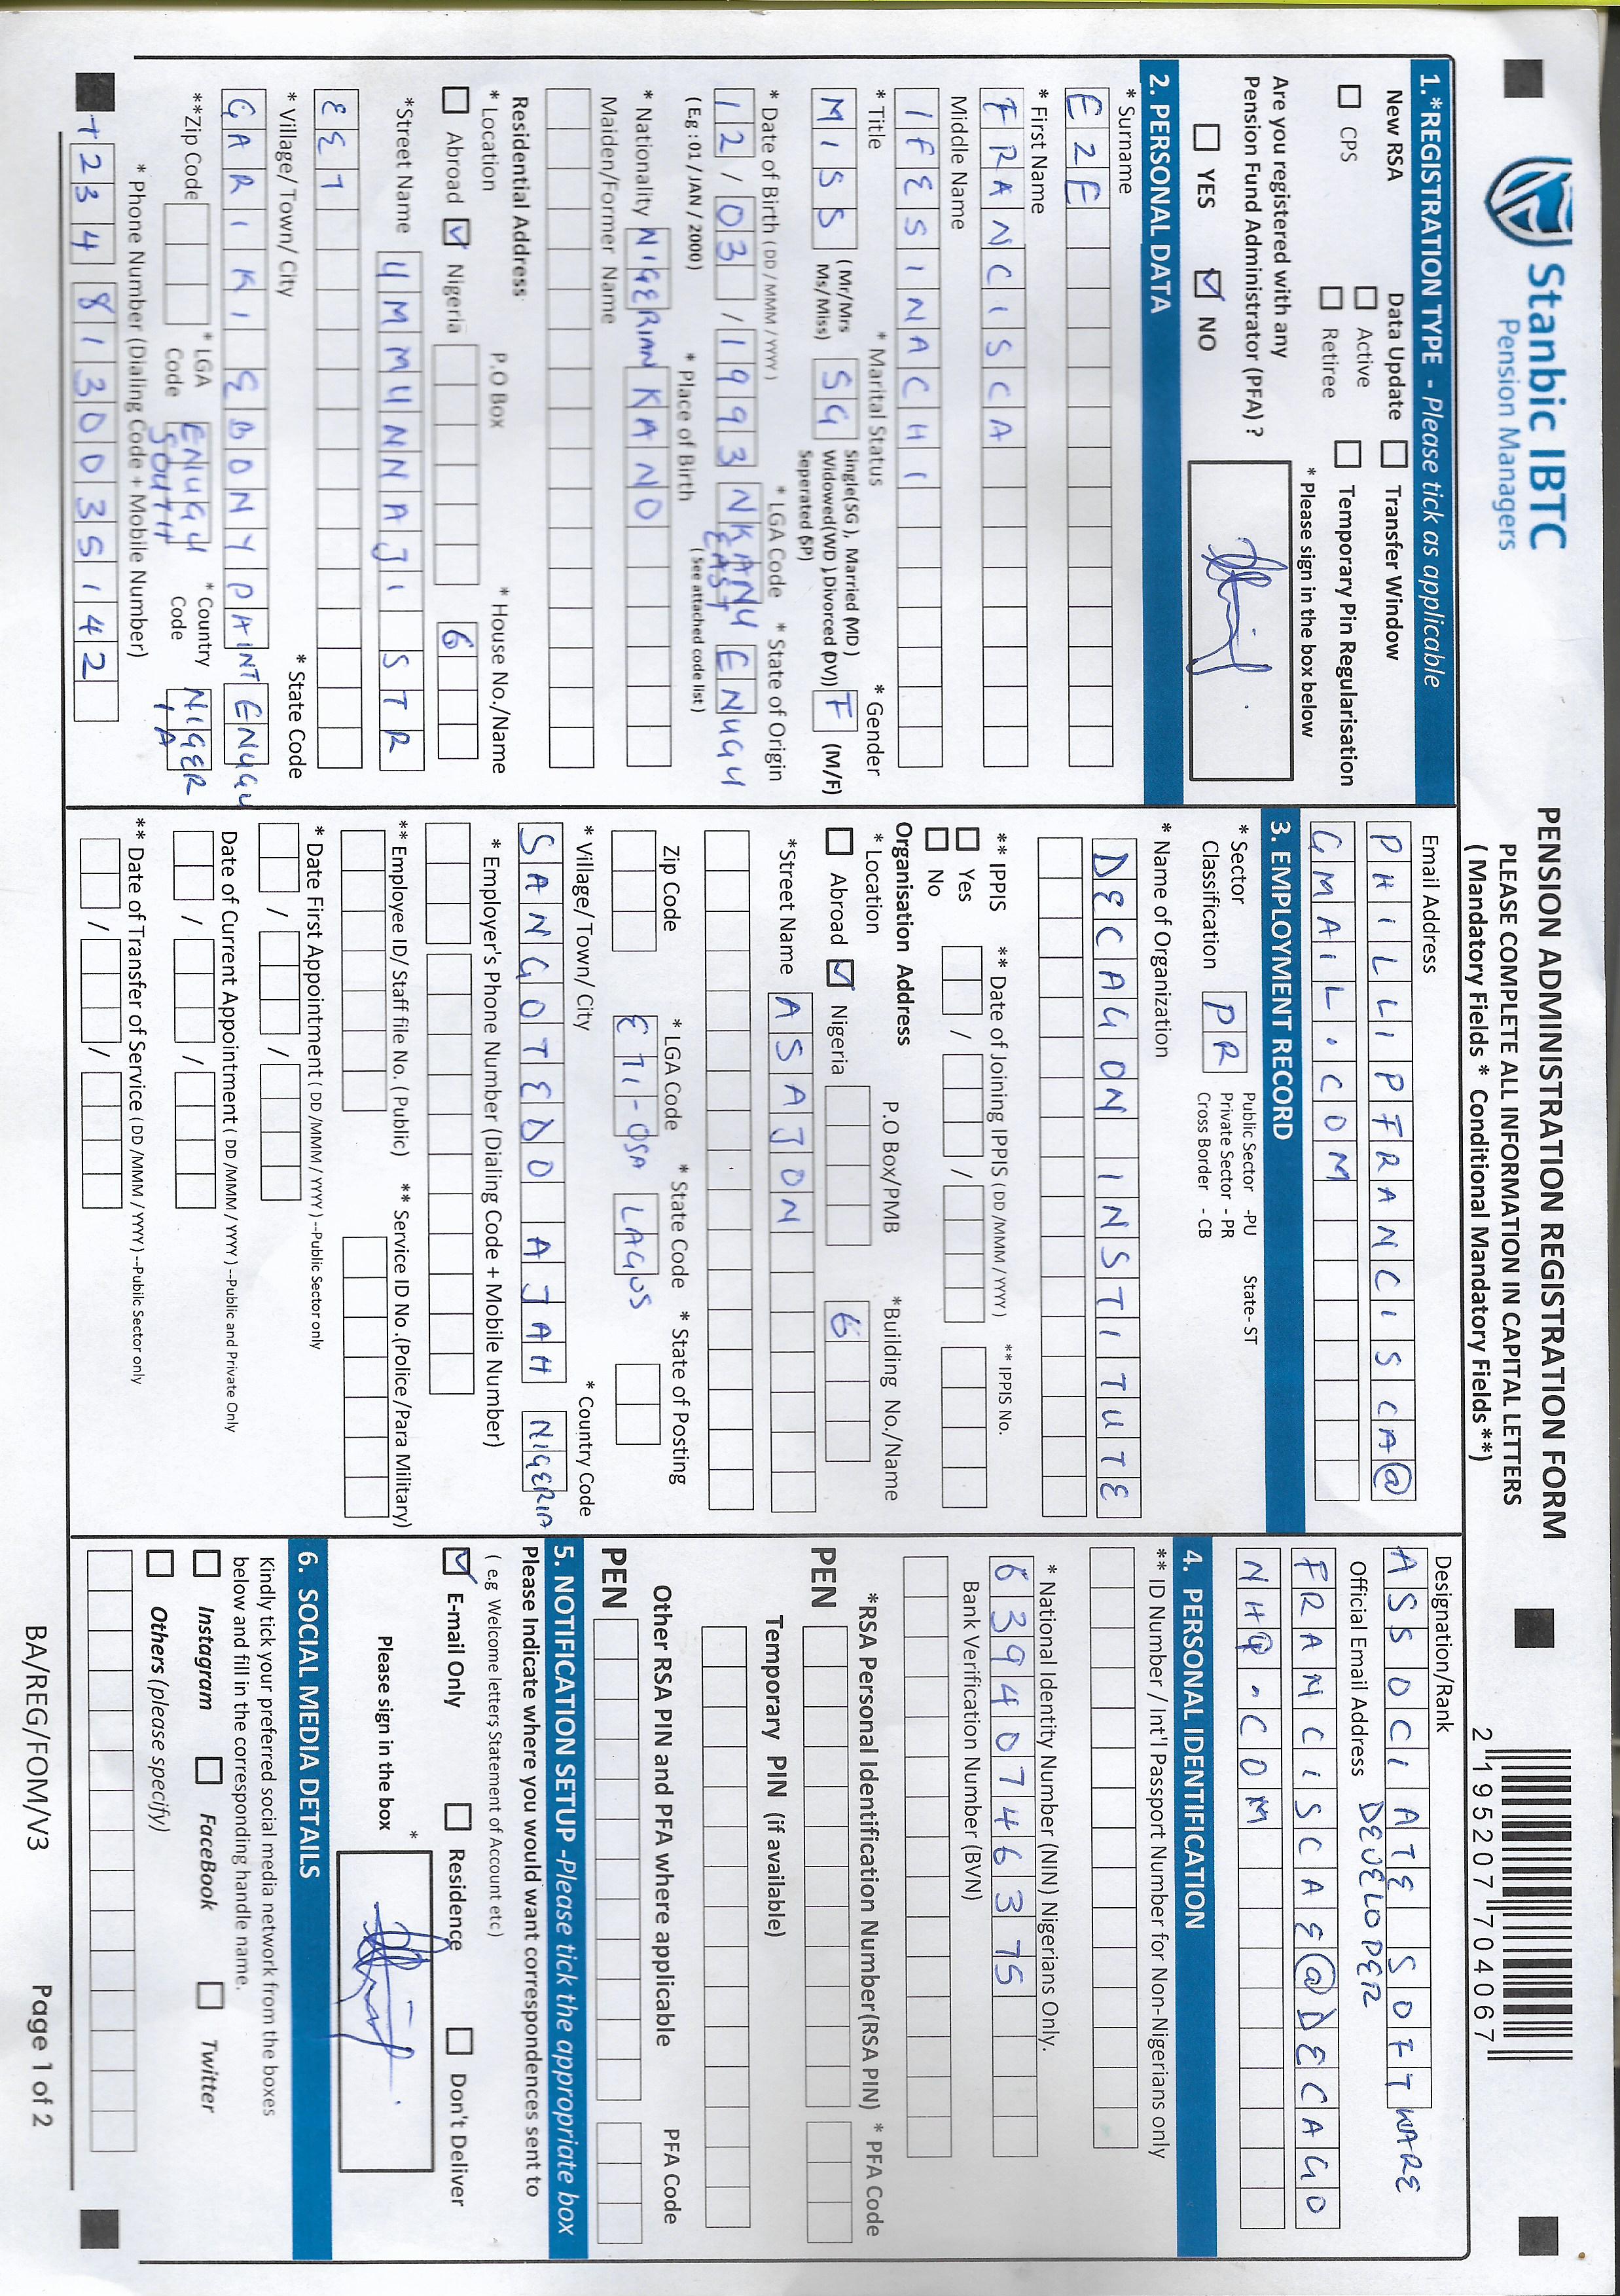 Stanbic IBTC
Pension Managers
PENSION ADMINISTRATION REGISTRATION FORM
PLEASE COMPLETE ALL INFORMATION IN CAPITAL LETTERS
( Mandatory Fields * Conditional Mandatory Fields **)
2 195207 704067
1.*REGISTRATION TYPE - Please tick as applicable
New RSA Data Update Transfer Window
CPS Active Temporary Pin Regularisation
Retiree
* Please sign in the box below
Are you registered with any
Pension Fund Administrator (PFA) ?
YES NO
2. PERSONAL DATA
* Surname
EZE
* First Name
FRANCISCA
Middle Name
IFESINACHI
* Title * Marital Status * Gender
MISS ( Mr/Mrs Ms/Miss) SG Single(SG ), Married (MD ) Widowed(WD ), Divorced (DV)) Seperated SP) F (M/F)
* Date of Birth ( DD / MMM / YYYY ) * LGA Code * State of Origin
12/03/1993 NKANU EAST ENUGU
( Eg :01 / JAN / 2000) (See attached code list )
* Nationality * Place of Birth
NIGERIAN KANO
Maiden/Former Name
Residential Address
* Location P.O Box * House No./Name
Abroad Nigeria 6
*Street Name UMMUNNAJI STR
EET
* Village/ Town/ City * State Code
GARIKI EBONYPAINT ENUGU
**Zip Code * LGA Code ENUGU SOUTH * Country Code NIGERIA
* Phone Number (Dialing Code + Mobile Number)
+234 8130035142
Email Address
PHILLIPFRANCISCA@
GMAIL.COM
3. EMPLOYMENT RECORD
* Sector Classification PR
Public Sector -PU State- ST
Private Sector - PR
Cross Border - CB
* Name of Organization
DECAGON INSTITUTE
** IPPIS ** Date of Joining IPPIS ( DD /MMM / YYYY ) ** IPPIS No.
Yes
No
Organisation Address
* Location P.O Box/PMB *Building No./Name
Abroad Nigeria 6
*Street Name ASAJON
Zip Code * LGA Code * State Code * State of Posting
ETI-OSA LAGOS
* Village/ Town/ City * Country Code
SANGOTEDO AJAH NIGERIA
* Employer's Phone Number (Dialing Code + Mobile Number)
** Employee ID/ Staff file No. ( Public) ** Service ID No .(Police /Para Military)
* Date First Appointment ( DD /MMM / YYYY ) --Public Sector only
Date of Current Appointment ( DD /MMM / YYYY ) --Public and Private Only
** Date of Transfer of Service ( DD /MMM / YYY ) --Public Sector only
Designation/Rank
ASSOCIATE SOFTWARE
DEVELOPER
Official Email Address
FRAMCISCAE@DECAGO
NHQ.COM
4. PERSONAL IDENTIFICATION
** ID Number / Int'l Passport Number for Non-Nigerians only
* National Identity Number (NIN) Nigerians Only.
63940746375
Bank Verification Number (BVN)
*RSA Personal Identification Number(RSA PIN) * PFA Code
PEN
Temporary PIN (if available)
Other RSA PIN and PFA where applicable PFA Code
PEN
5. NOTIFICATION SETUP -Please tick the appropriate box
Please Indicate where you would want correspondences sent to
( e.g Welcome letters, Statement of Account etc )
E-mail Only Residence Don't Deliver
Please sign in the box *
6. SOCIAL MEDIA DETAILS
Kindly tick your preferred social media network from the boxes
below and fill in the corresponding handle name.
Instagram FaceBook Twitter
Others (please specify)
BA/REG/FOM/V3 Page 1 of 2